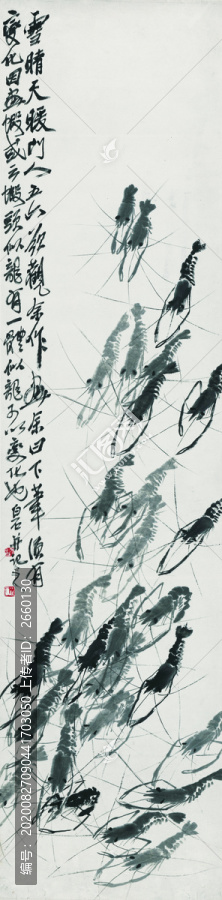 雪晴天暖門人五六欲觀余作畫余曰下筆須有
變化因畫蝦或云蝦頭似龍有一體似龍可以變化也白石并記
编号:20200827090441703050 上传者ID:2660130